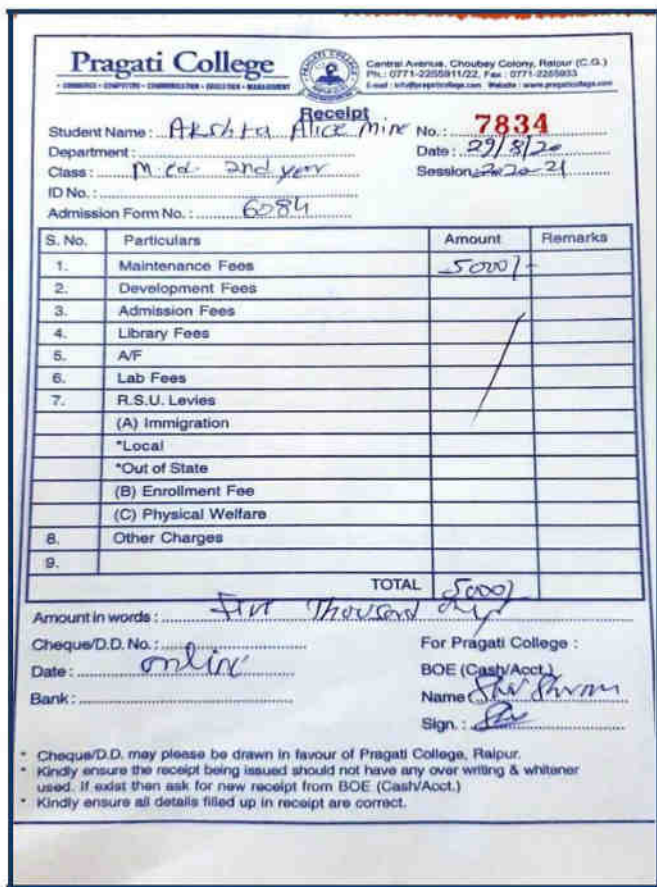 Pragati College
• COMMERCE • COMPUTERS • COMMUNICATION • EDUCATION • MANAGEMENT
Central Avenue, Choubey Colony, Raipur (C.G.)
Ph.: 0771-2255911/22, Fax : 0771-2255933
E-mail : info@pragaticollege.com Website : www.pragaticollege.com
Receipt
Student Name : Alice No. : 7834
Department : Date : 29/8/20
Class : M.ed. 2nd year Session 2020-21
ID No. :
Admission Form No. : 6084
S. No. Particulars Amount Remarks
1. Maintenance Fees 5000/-
2. Development Fees
3. Admission Fees
4. Library Fees
5. A/F
6. Lab Fees
7. R.S.U. Levies
(A) Immigration
*Local
*Out of State
(B) Enrollment Fee
(C) Physical Welfare
8. Other Charges
9.
TOTAL 5000/
Amount in words : Five Thousand only
Cheque/D.D. No. : For Pragati College :
Date : online BOE (Cash/Acct.)
Bank : Name
Sign. :
* Cheque/D.D. may please be drawn in favour of Pragati College, Raipur.
* Kindly ensure the receipt being issued should not have any over writing & whitener
used. If exist then ask for new receipt from BOE (Cash/Acct.)
* Kindly ensure all details filled up in receipt are correct.